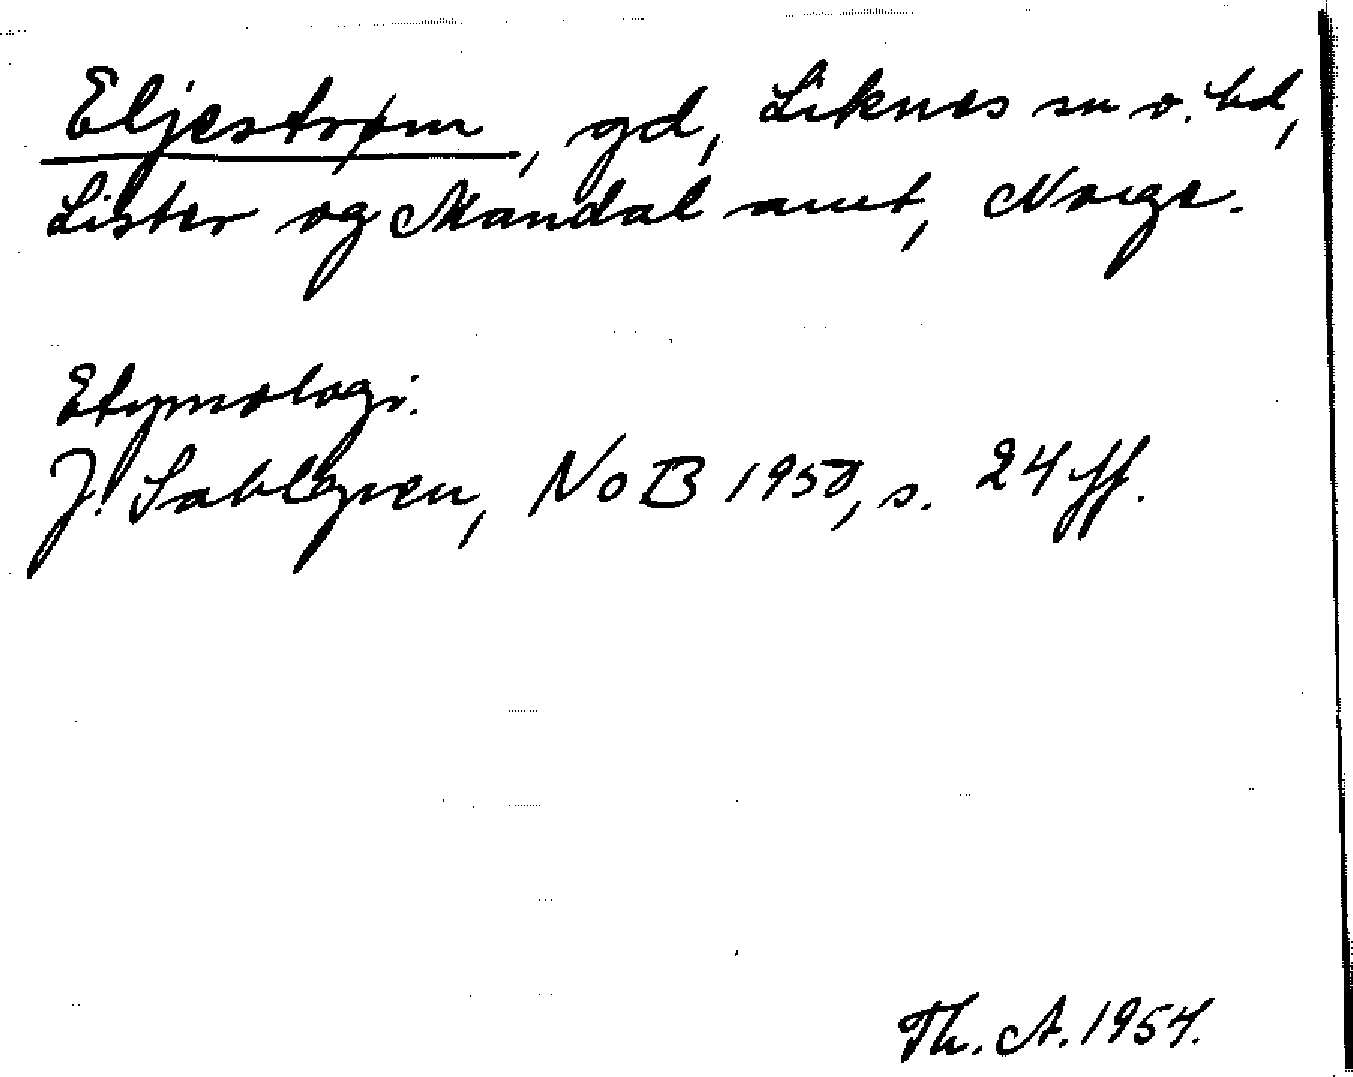 Eljestrøm, gd, Liknes sn o. hd,
Lister og Mandal amt, Norge.
Etymologi.
J. Sahlgren, NoB 1950, s. 24 ff.
Th. A. 1954.